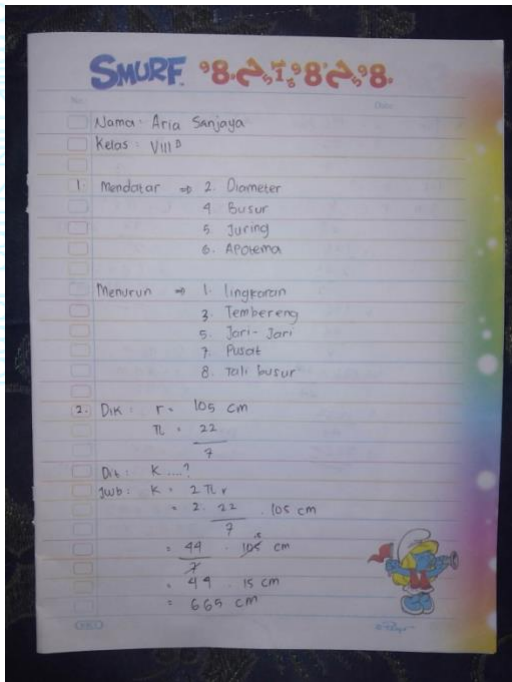 SMURF
No.
Date:
Nama : Aria Sanjaya
Kelas : VIII B
1. Mendatar ⇒ 2. Diameter
4 Busur
5 Juring
6. Apotema
Menurun ⇒ 1. lingkaran
3. Tembereng
5. Jari-Jari
7. Pusat
8. Tali busur
2. Dik : r = 105 cm
π = 22
7
Dit : K ....?
Jwb : K = 2 π r
= 2. 22 . 105 cm
7
= 44 . 105 cm
7
= 44 . 15 cm
= 665 cm